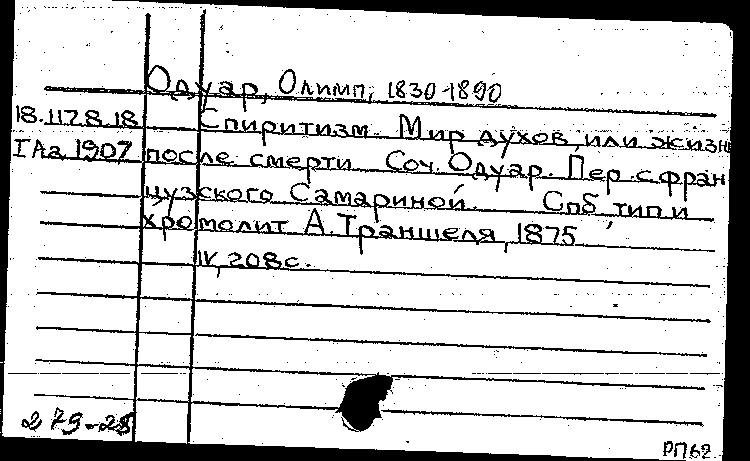 Одуар, Олимп, 1830-1890
18.117.8.18 Спиритизм. Мир духов, или жизнь
I Аа 1907 после смерти Соч. Одуар. Пер. с фран
цузского Самариной. Спб, тип и
хромолит А. Траншеля, 1875
IV, 208 с.
279-28
РП62